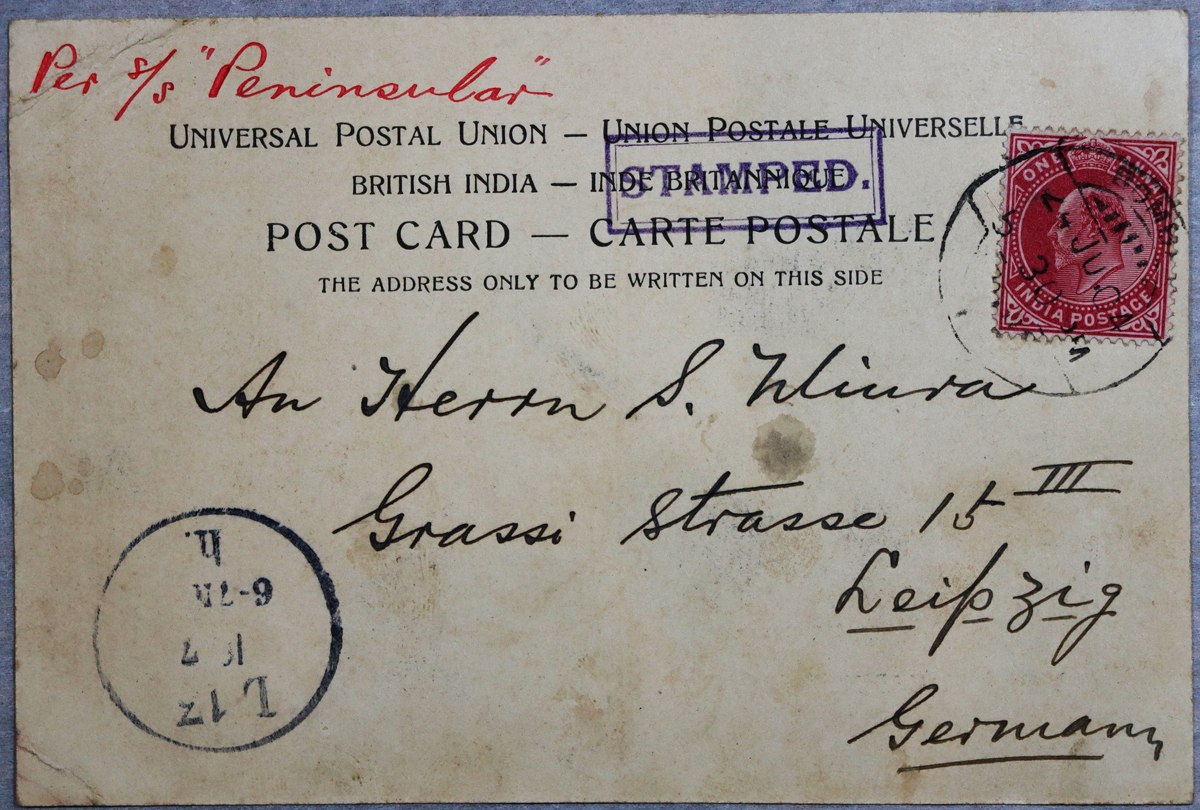 Per s/s "Peninsular"
UNIVERSAL POSTAL UNION — UNION POSTALE UNIVERSELLE
BRITISH INDIA — INDE BRITANNIQUE
STAMPED.
POST CARD — CARTE POSTALE
THE ADDRESS ONLY TO BE WRITTEN ON THIS SIDE
ONE
INDIA POSTAGE
An Herrn S.
Grassi Strasse 15 III
Leipzig
Germany
L 13
6-7